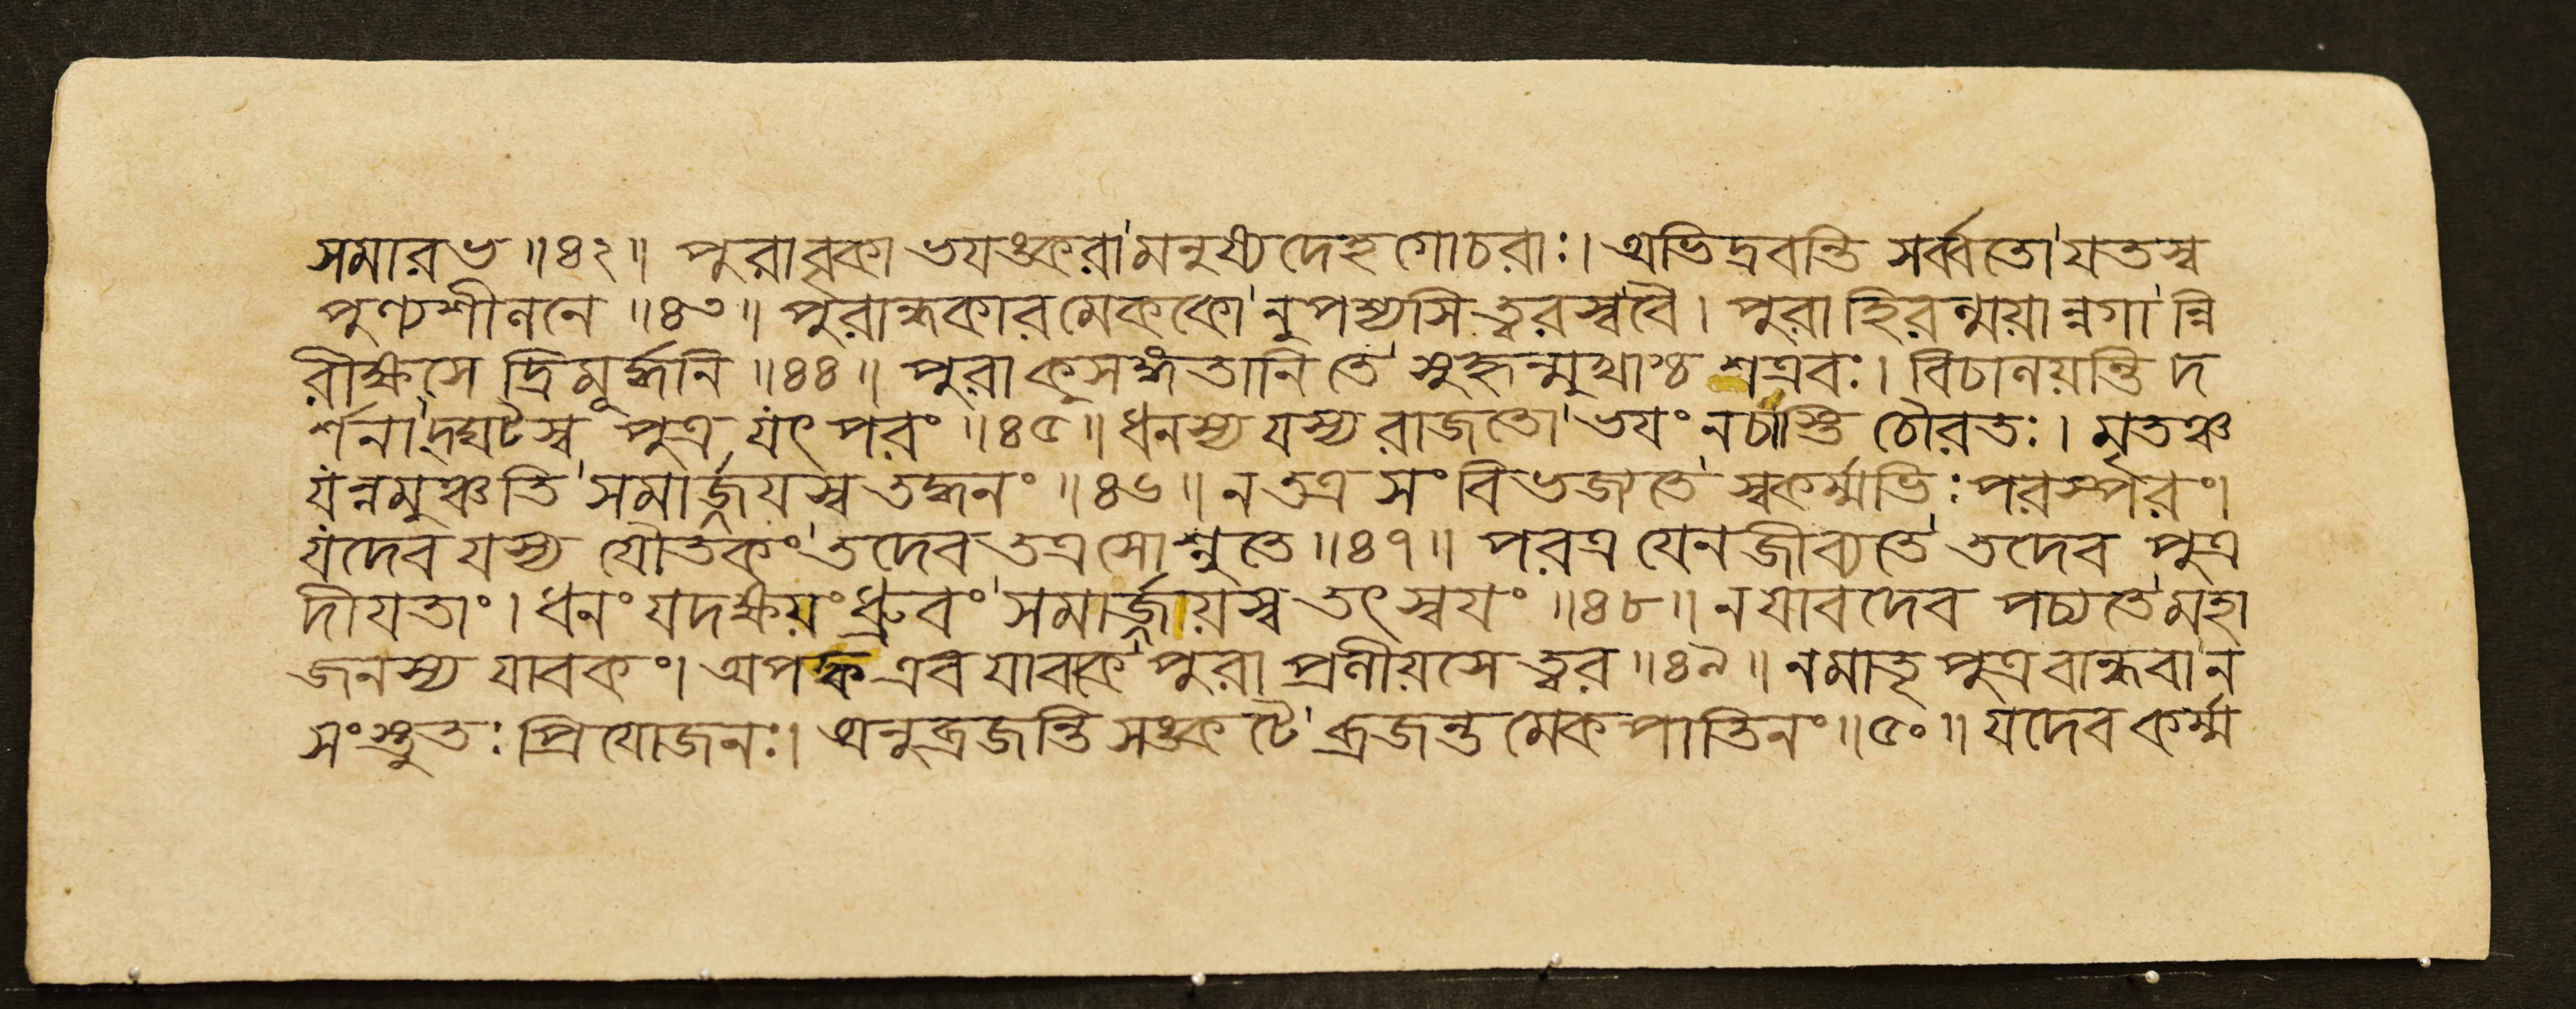 সমারভ ॥৪২॥ পুরাবৃকা ভযঙ্করা মনুষ্য দেহ গোচরাঃ। অভিদ্রবন্তি সর্ব্বতো যতস্ব
পুণ্যশীলনে ॥৪৩॥ পুরান্ধকার মেককো নুপশ্যসি ত্বরস্ববৈ। পুরা হিরন্ময়ান্নগা ন্নি
রীক্ষসে দ্রিমূর্দ্ধনি ॥৪৪॥ পুরা কুসঙ্গতানি তে সুহৃন্মুখাশ্চ শত্রবঃ। বিচালয়ন্তি দ
র্শনাদ্ঘটস্ব পুত্র যৎ পরং ॥৪৫॥ ধনস্য যস্য রাজতো ভযং নচাস্তি চৌরতঃ। মৃতঞ্চ
যন্নমুঞ্চতি সমার্জ্জযস্ব তদ্ধনং ॥৪৬॥ ন তত্র সংবিভজ্যতে স্বকর্ম্মভিঃ পরস্পরং।
যদেব যস্য যৌতকং তদেব তত্র সোশ্নুতে ॥৪৭॥ পরত্র যেন জীব্যতে তদেব পুত্র
দীযতাং। ধনং যদক্ষয়ং ধ্রুবং সমার্জ্জয়স্ব তৎ স্বযং ॥৪৮॥ ন যাবদেব পচ্যতে মহা
জনস্য যাবকং। অপক্ক এব যাবকে পুরা প্রলীয়সে ত্বর ॥৪৯॥ নমাতৃ পুত্র বান্ধবা ন
সংস্তুতঃ প্রিযোজনঃ। অনুব্রজন্তি সঙ্কটে ব্রজন্ত মেক পাতিনং ॥৫০॥ যদেব কর্ম্ম